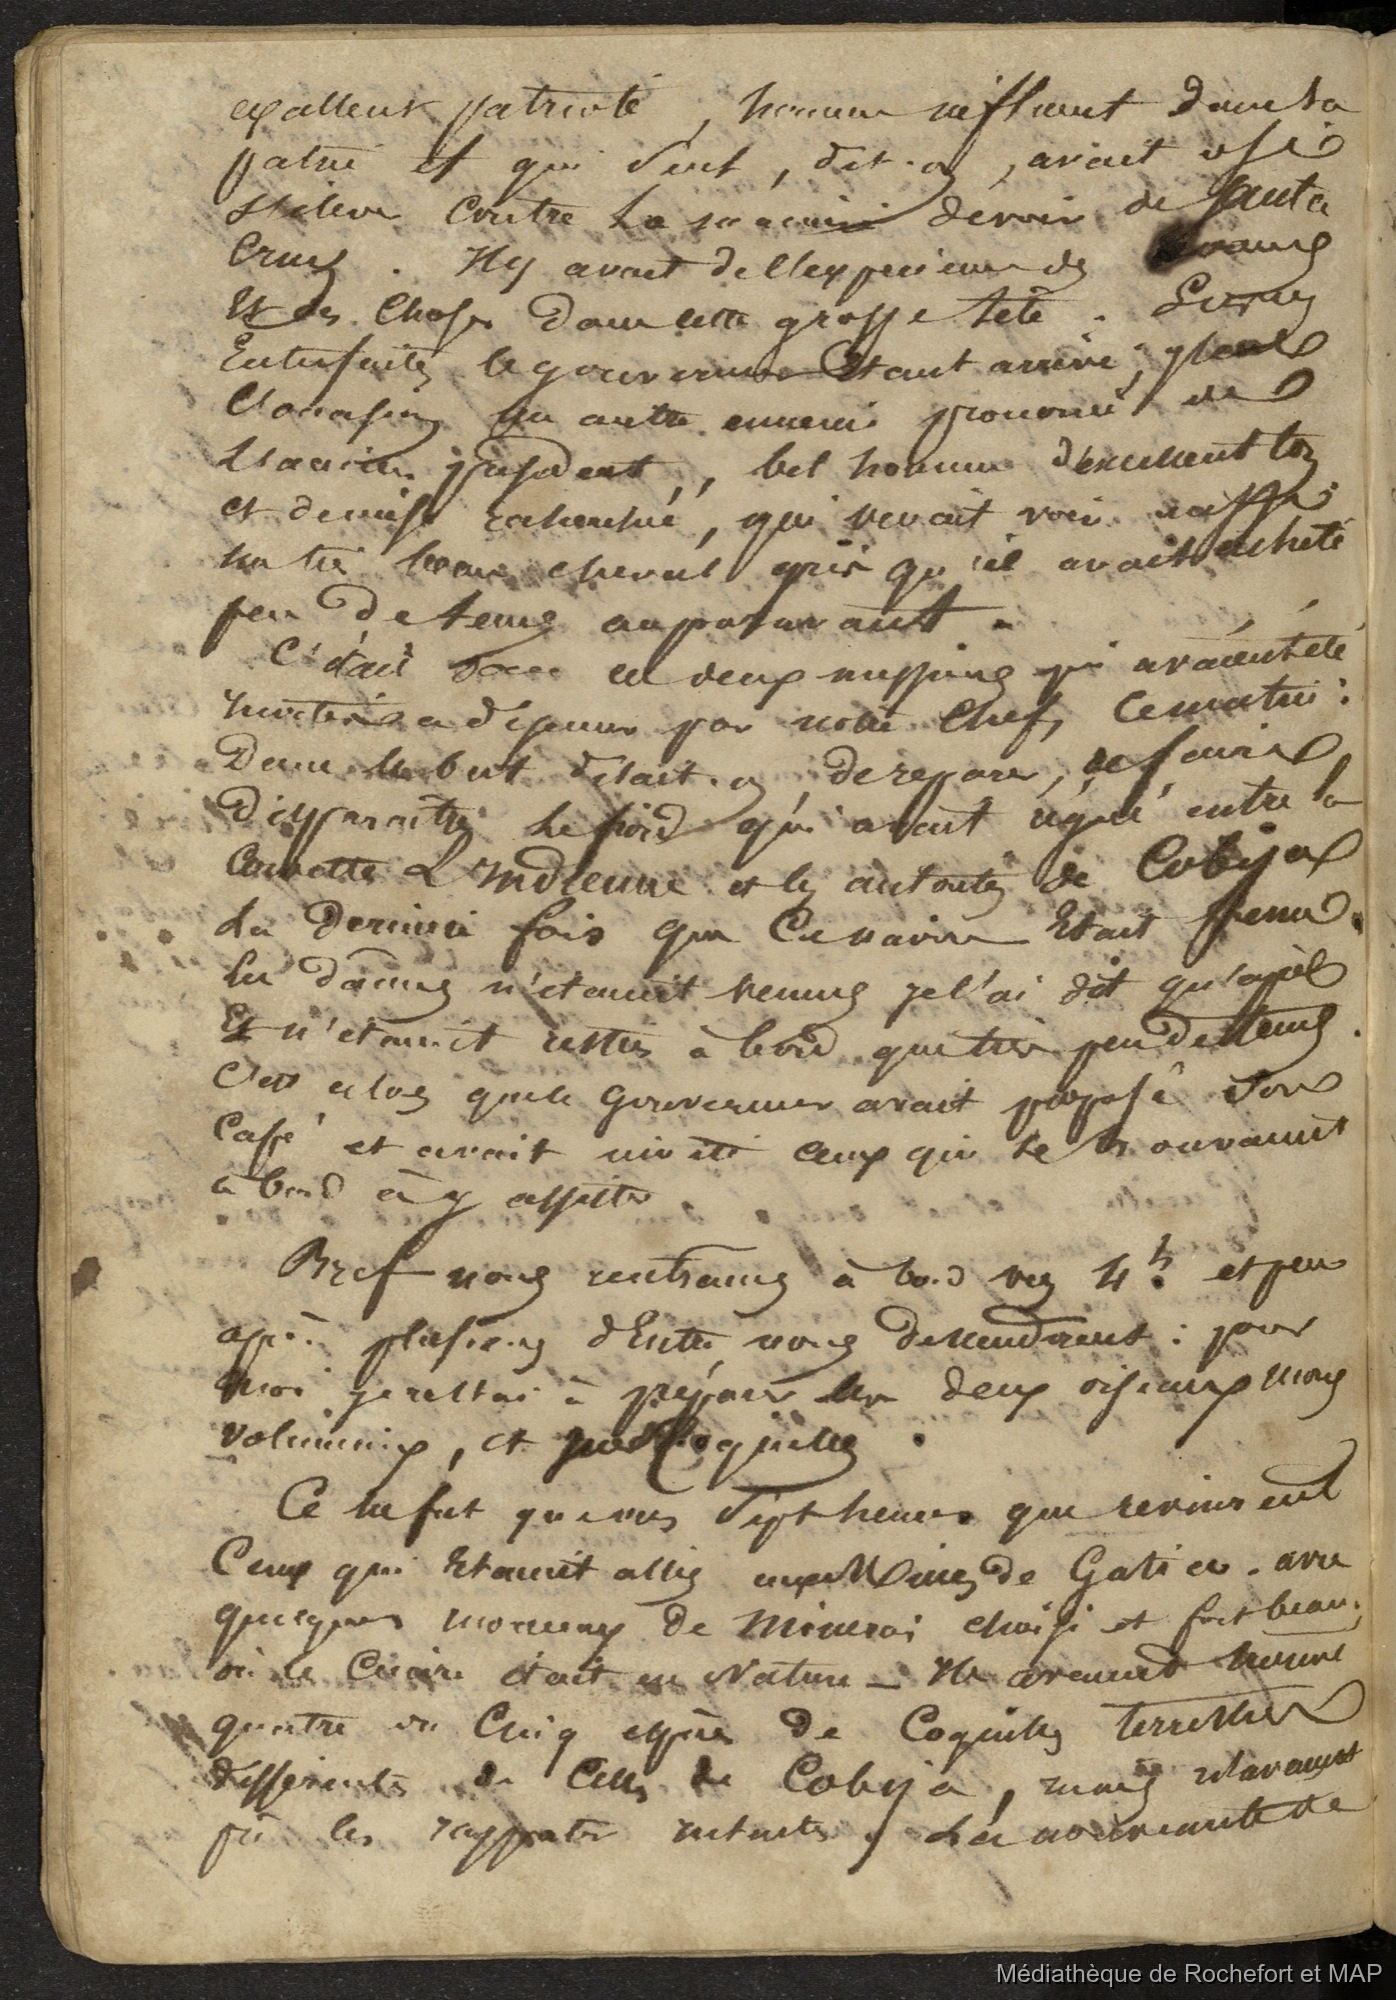 excellent patriote, homme influent dans sa
patrie et qui seul, dit-on, avait osé
s'élever contre la manière de voir de Santa
Cruz. Il y avait de l'expérience des
et des choses dans cette grosse tête.
le gouverneur étant arrivé,
un autre ennemi prononcé de
l'ancien président, bel homme d'excellent ton
et de mise recherchée, qui venait voir aussi
un très beau cheval gris qu'il avait acheté
peu de tems auparavant.
C'était donc ces deux messieurs qui avaient été
invités a déjeuner par notre Chef, ce matin :
Dans le but disait-on, de reparer, de faire
disparaitre le froid qui avait régné entre la
Corvette L'indienne et les autorités de Cobija
La dernière fois que ce navire était venu.
Les dames n'étaient venues je l'ai dit qu'après
Et n'étaient restées à bord que très peu de tems.
C'est alors que le gouverneur avait proposé son
Café et avait invité ceux qui se trouvaient
à bord à y assister.
Bref nous rentrames à bord vers 4h. et peu
après plusieurs d'Entre nous descendirent : pour
moi je restai à préparer les deux oiseaux moins
volumineux, et mes Coquilles.
Ce ne fut que vers sept heures que revinrent
Ceux qui étaient allés aux Mines de Gatico. avec
quelques morceaux de Minerai choisi et fort beau,
où le Cuivre était en Nature _ Ils avaient trouvé
quatre ou Cinq espèces de Coquilles terrestres
differentes de Celles de Cobija, mais n'avaient
pu les rapporter intactes. La nouveauté de